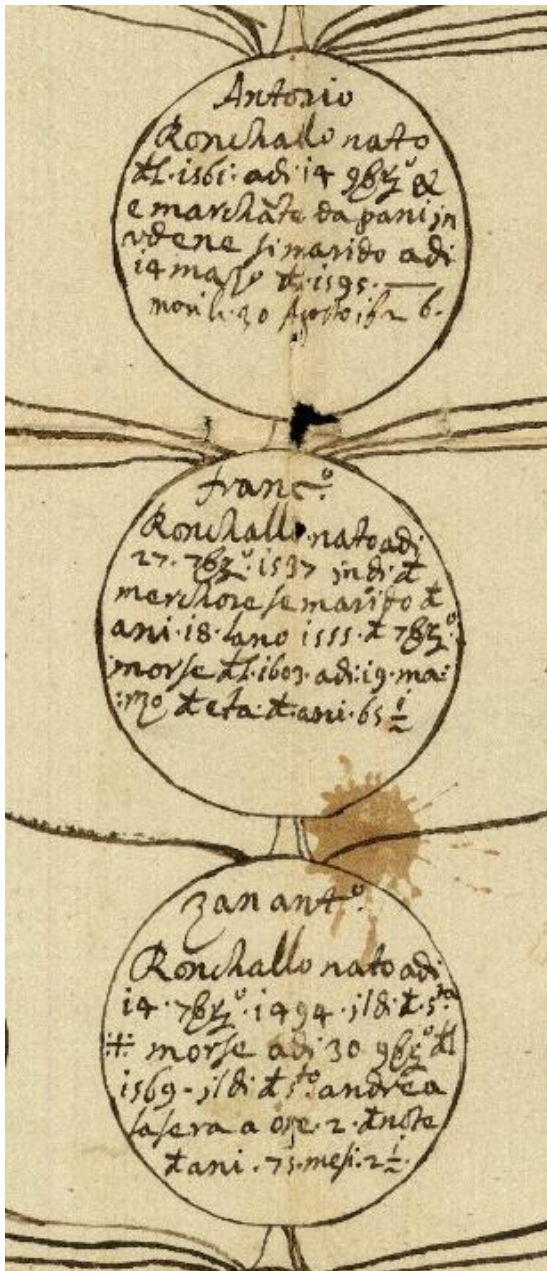 Antonio
Ronchallo nato
dl · 1561 · adi · 14 9bro &
e marchāte da pani in
vdene si marido adi
14 mazo d · 1595 ·
mori li 30 Agosto 162 6 ·
franc.o
Ronchallo nato adi
27 · 7bro · 1537 in di d
merchore se marido d
ani · 18 · lano 1555 · d 7bro ·
morse dl · 1603 · adi · 19 · ma:
:rzo d eta d · ani · 65 1/2
zan ant.o
Ronchallo nato adi
14 · 7bro · 1494 · il di d · s.ta
⁜ morse adi 30 9bro dl
1569 - il di d s.to andrea
la sera a ore · 2 · d note
d ani · 75 · mesi · 2 1/2 ·